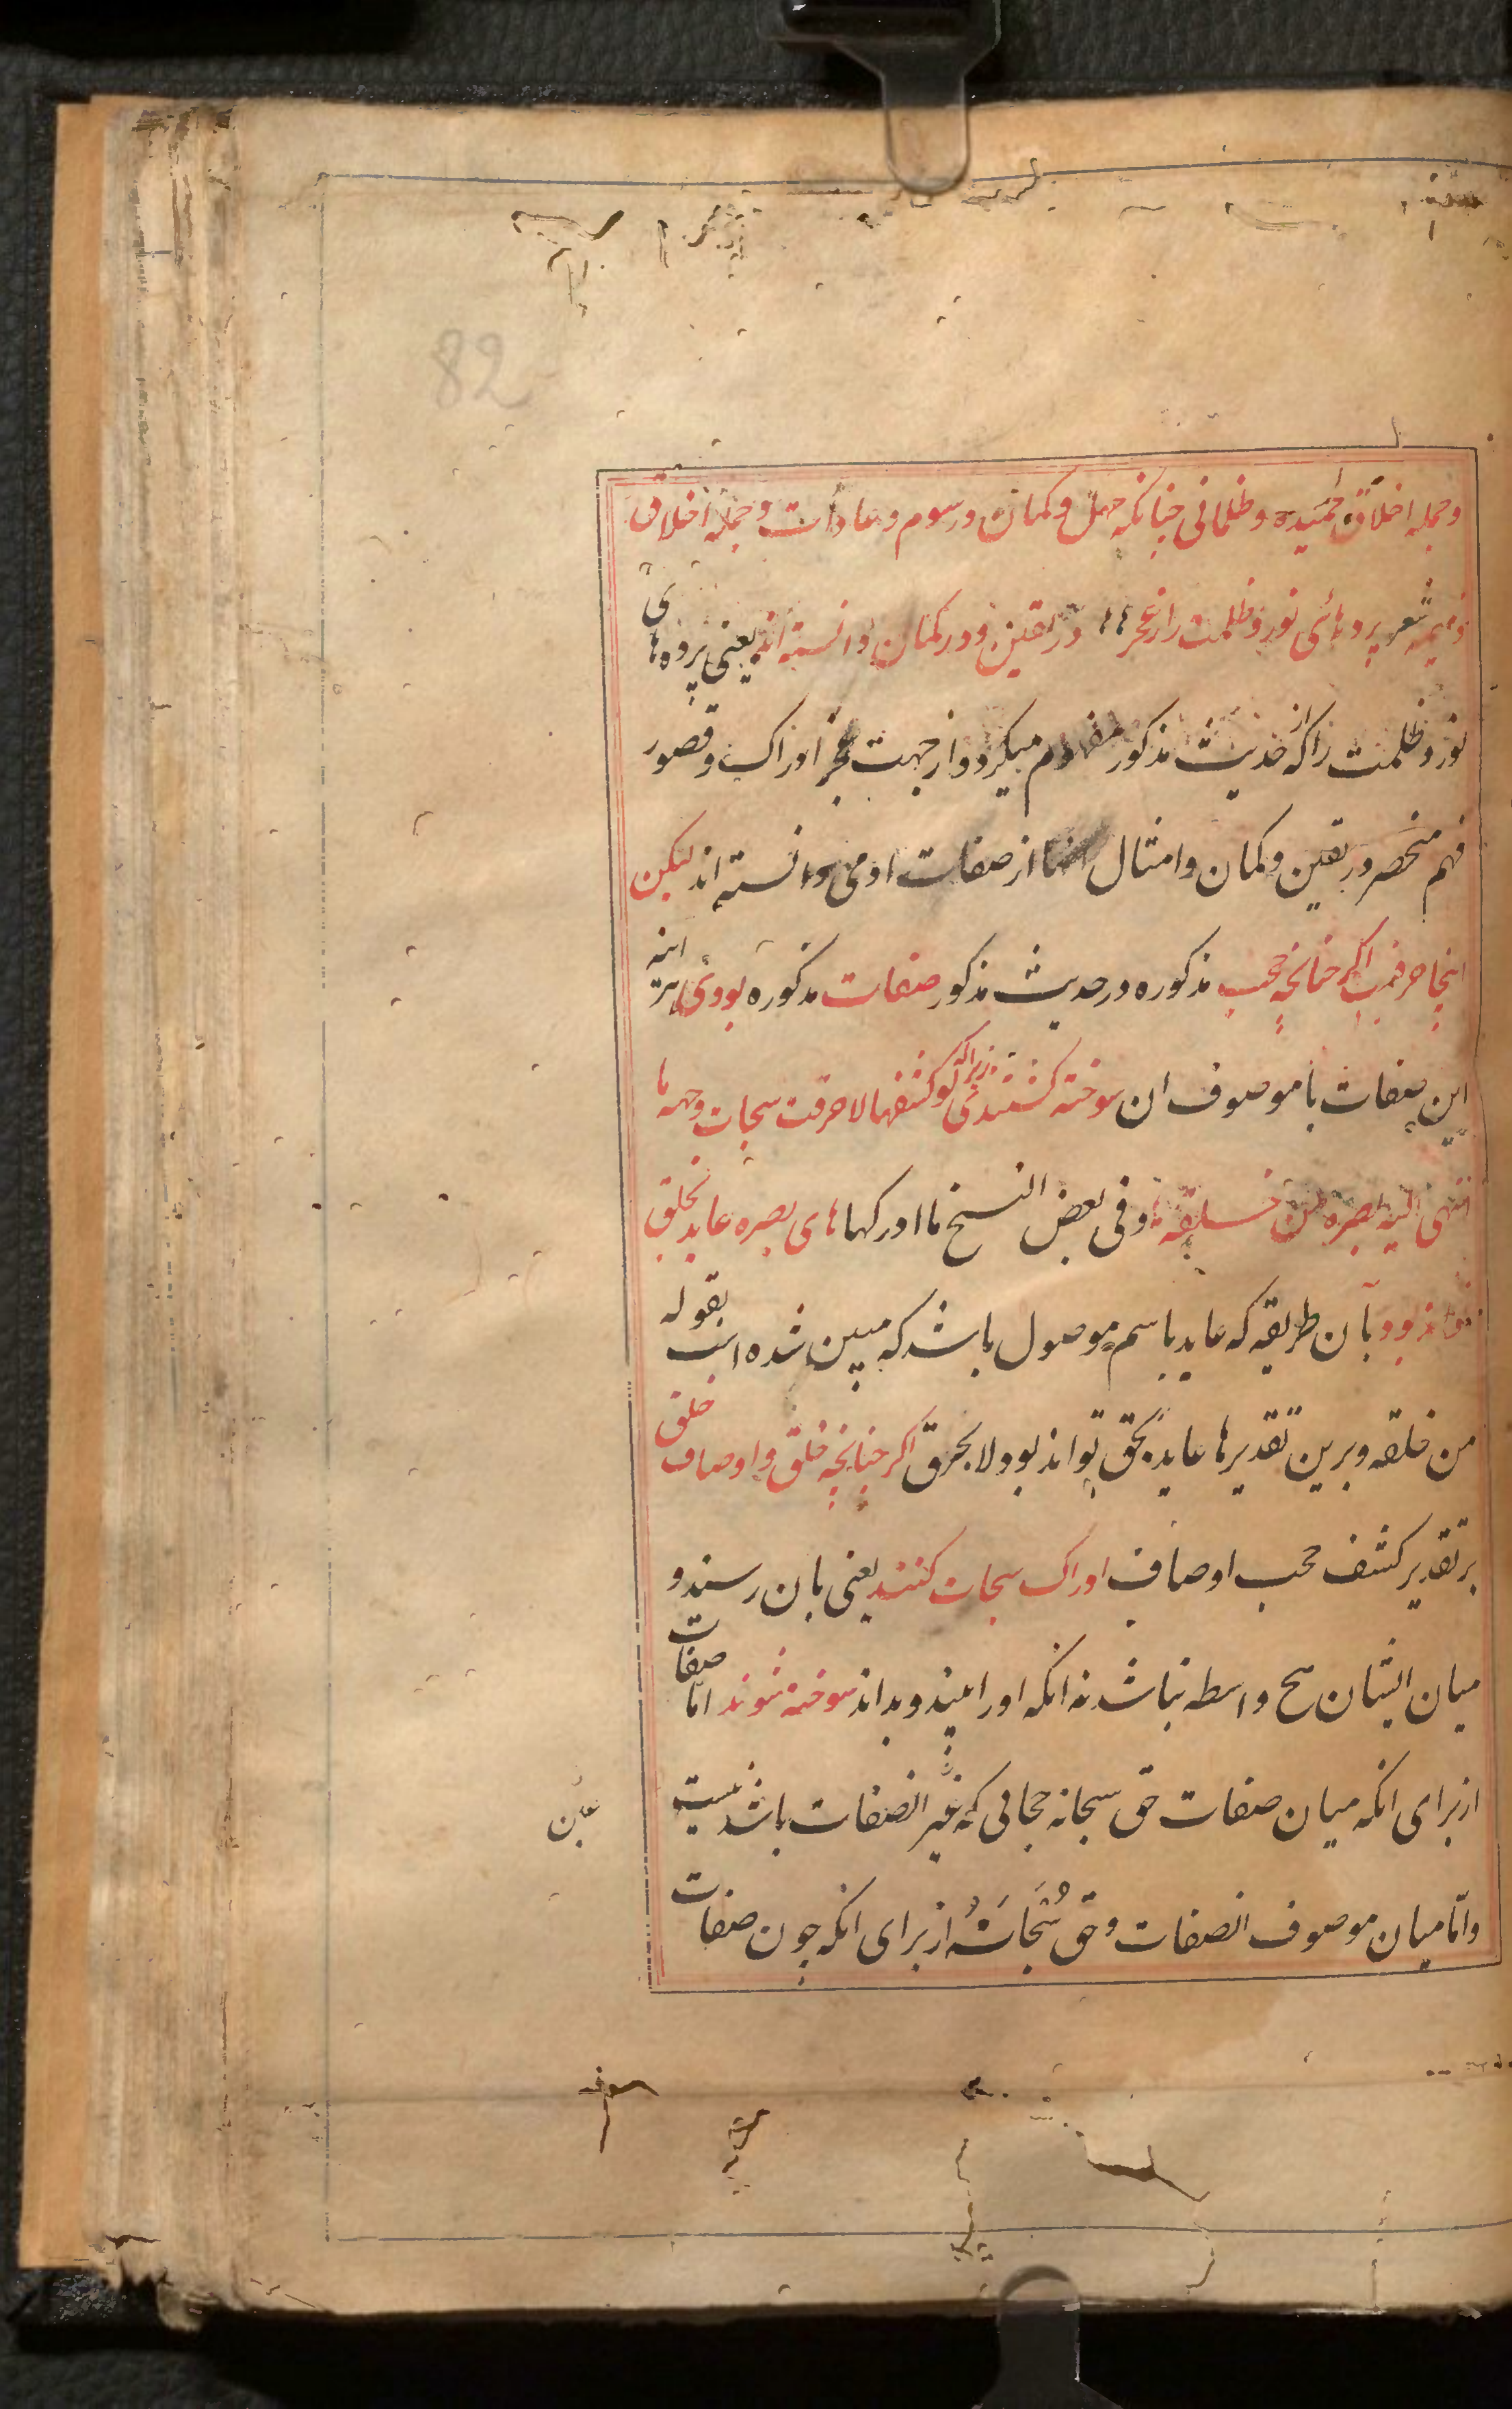 82
وجمله اخلاق حمیده وظلمانی چنانکه جهل وکمان ورسوم وعادات وجمله اخلاق
ذمیمه شعر پردهائی نور وظلمت را از عجز در یقین ودر کمان دانسته اند یعنی پردهای
نور وظلمت را که از حدیث مذکور مفهوم میکردد از جهت عجز ادراک وقصور
فهم منحصر در یقین وکمان وامثال از صفات ادمی دانسته اند لیکن
اینجا حرفیست اکر چنانچه حجب مذکوره در حدیث مذکور صفات مذکوره بودی اینه
این صفات با موصوف ان سوخته کشتندی زیرا که لو کشفها لاحرقت سبحات وجهه ما
انتهی الیه بصره من خلقه وفی بعض النسخ ما ادرکها های بصره عاید بخلق
تواند بود بآن طریقه که عاید باسم موصول باشد که مبین شده است بقوله
من خلقه وبرین تقدیرها عاید بحق تواند بود لا بحرق اکر چنانچه خلق واوصاف خلق
بر تقدیر کشف حجب اوصاف ادراک سبحات کنند یعنی بان رسند و
میان ایشان هیچ واسطه نباشد نه انکه او را بیند وبداند سوخته شوند اما صفات
از برای انکه میان صفات حق سبحانه حجابی که غیر انصفات باشد نیست
واما میان موصوف انصفات وحق سُبْحانَهُ از برای انکه چون صفات